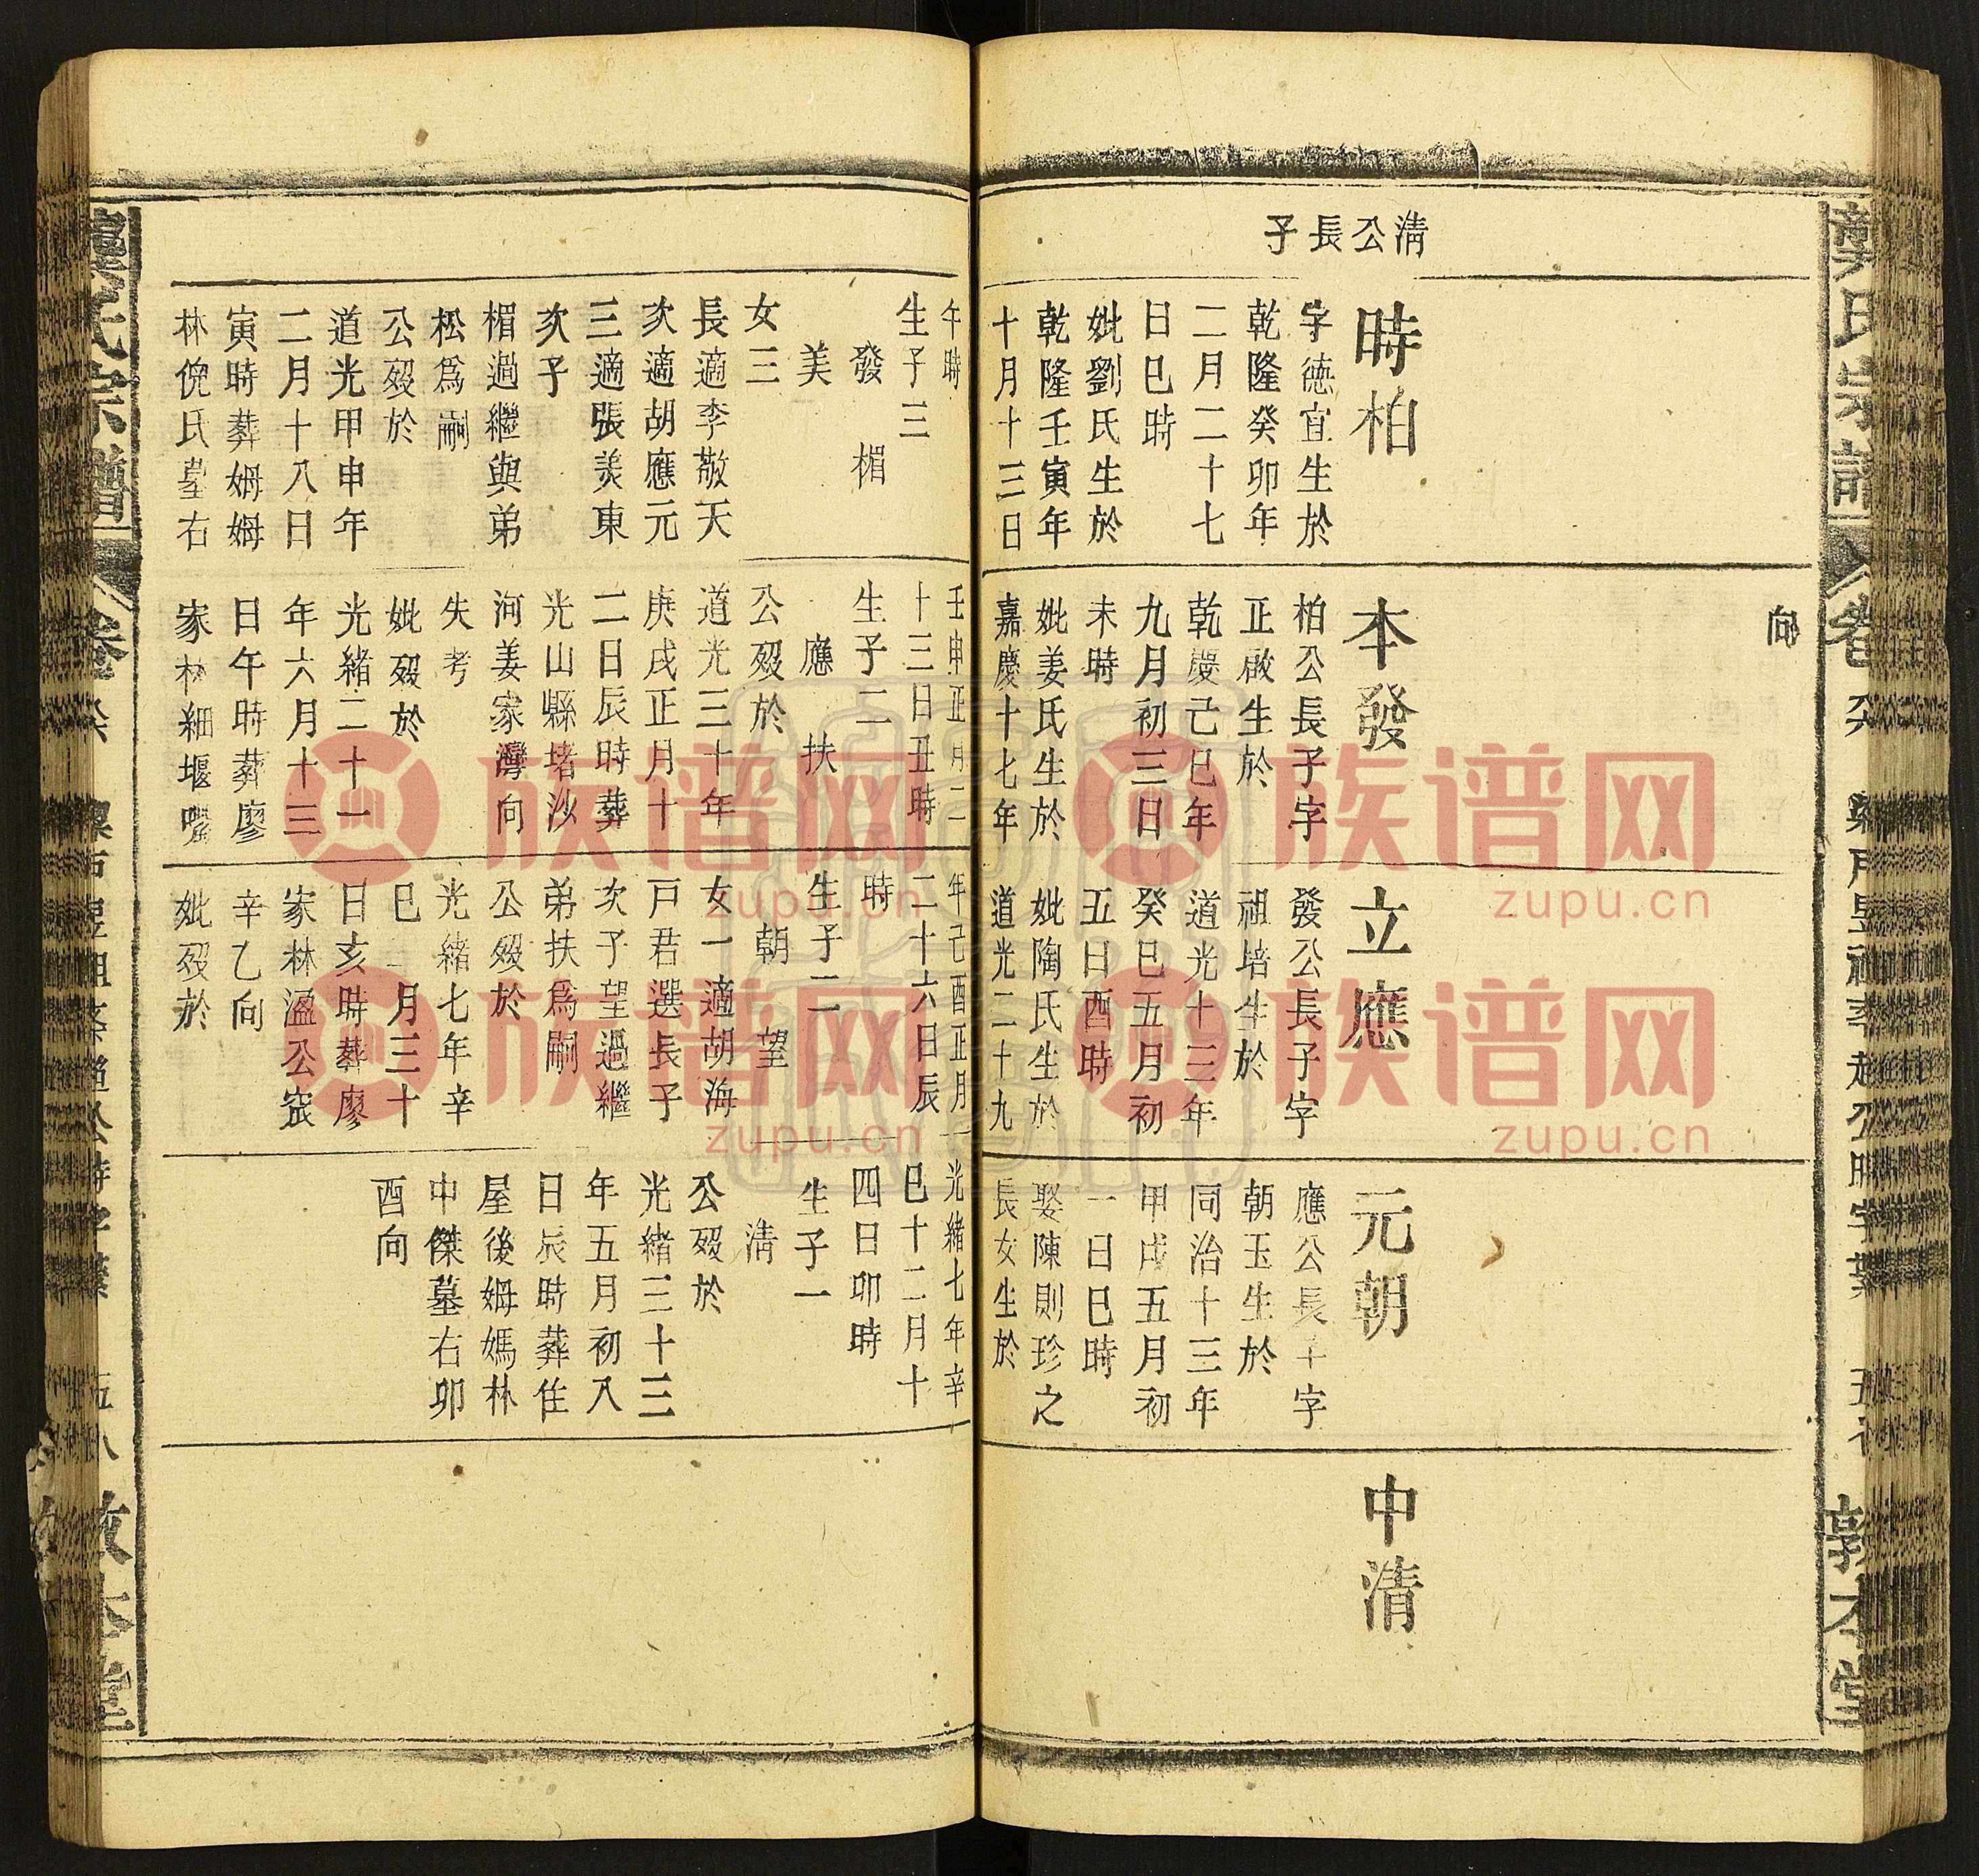 清公長子
時柏
字德宜生於
乾隆癸卯年
二月二十七
日巳時
妣劉氏生於
乾隆壬寅年
十月十三日
午時
生子三
發 楣
美
女三
長適李敬天
次適胡應元
三適張羙東
次子
楣過繼與弟
松爲嗣
公歿於
道光甲申年
二月十八日
寅時葬姆姆
林倪氏墓右
向
本發
柏公長子字
正啟生於
乾隆己巳年
九月初三日
未時
妣姜氏生於
嘉慶十七年
壬申正月二
十三日丑時
生子二
應 扶
公歿於
道光三十年
庚戌正月十
二日辰時葬
光山縣堵沙
河姜家灣向
失考
妣歿於
光緒二十一
年六月十三
日午時葬廖
家林細堰嘴
立應
發公長子字
祖培生於
道光十三年
癸巳五月初
五日酉時
妣陶氏生於
道光二十九
年己酉正月
二十六日辰
時
生子二
朝 望
女一適胡海
戸君選長子
次子望過繼
弟扶爲嗣
公歿於
光緒七年辛
巳 月三十
日亥時葬廖
家林溫公窊
辛乙向
妣歿於
元朝
應公長子字
朝玉生於
同治十三年
甲戌五月初
一日巳時
娶陳則珍之
長女生於
光緒七年辛
巳十二月十
四日卯時
生子一
清
公歿於
光緒三十三
年五月初八
日辰時葬住
屋後姆媽林
中傑墓右卯
酉向
中清
敦本堂
族谱网
zupu.cn
族谱网
zupu.cn
族谱网
zupu.cn
族谱网
zupu.cn